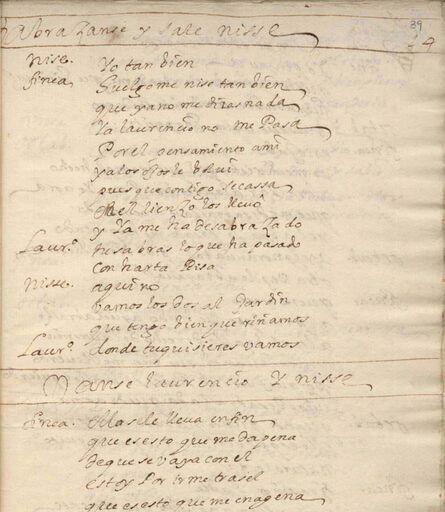 39
Abrazanse y sale nisse
4
Nise. Yo tan bien
finea. Guelgome nise tan bien
que ya no me diras nada
Ya laurencio no me Pasa
Por el pensamiento a mi
y a los ojos le bolui
pues que contigo se cassa
En el lienzo los lleuô
y Ya me ha desabrazado
Laurº. tu sabras lo que ha pasado
con harta Risa
Nisse. aqui no
vamos los dos al Jardin
que tengo bien que riñamos
Laurº. donde tu quisieres vamos
Vanse laurencio Y nisse
finea. Mas se le lleua en fin
que es esto que me da pena
de que se vaya con el
estoy Por irme tras el
que es esto que me enagena